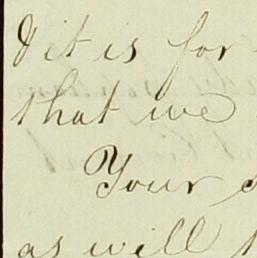 it is for
that we
Your
as will